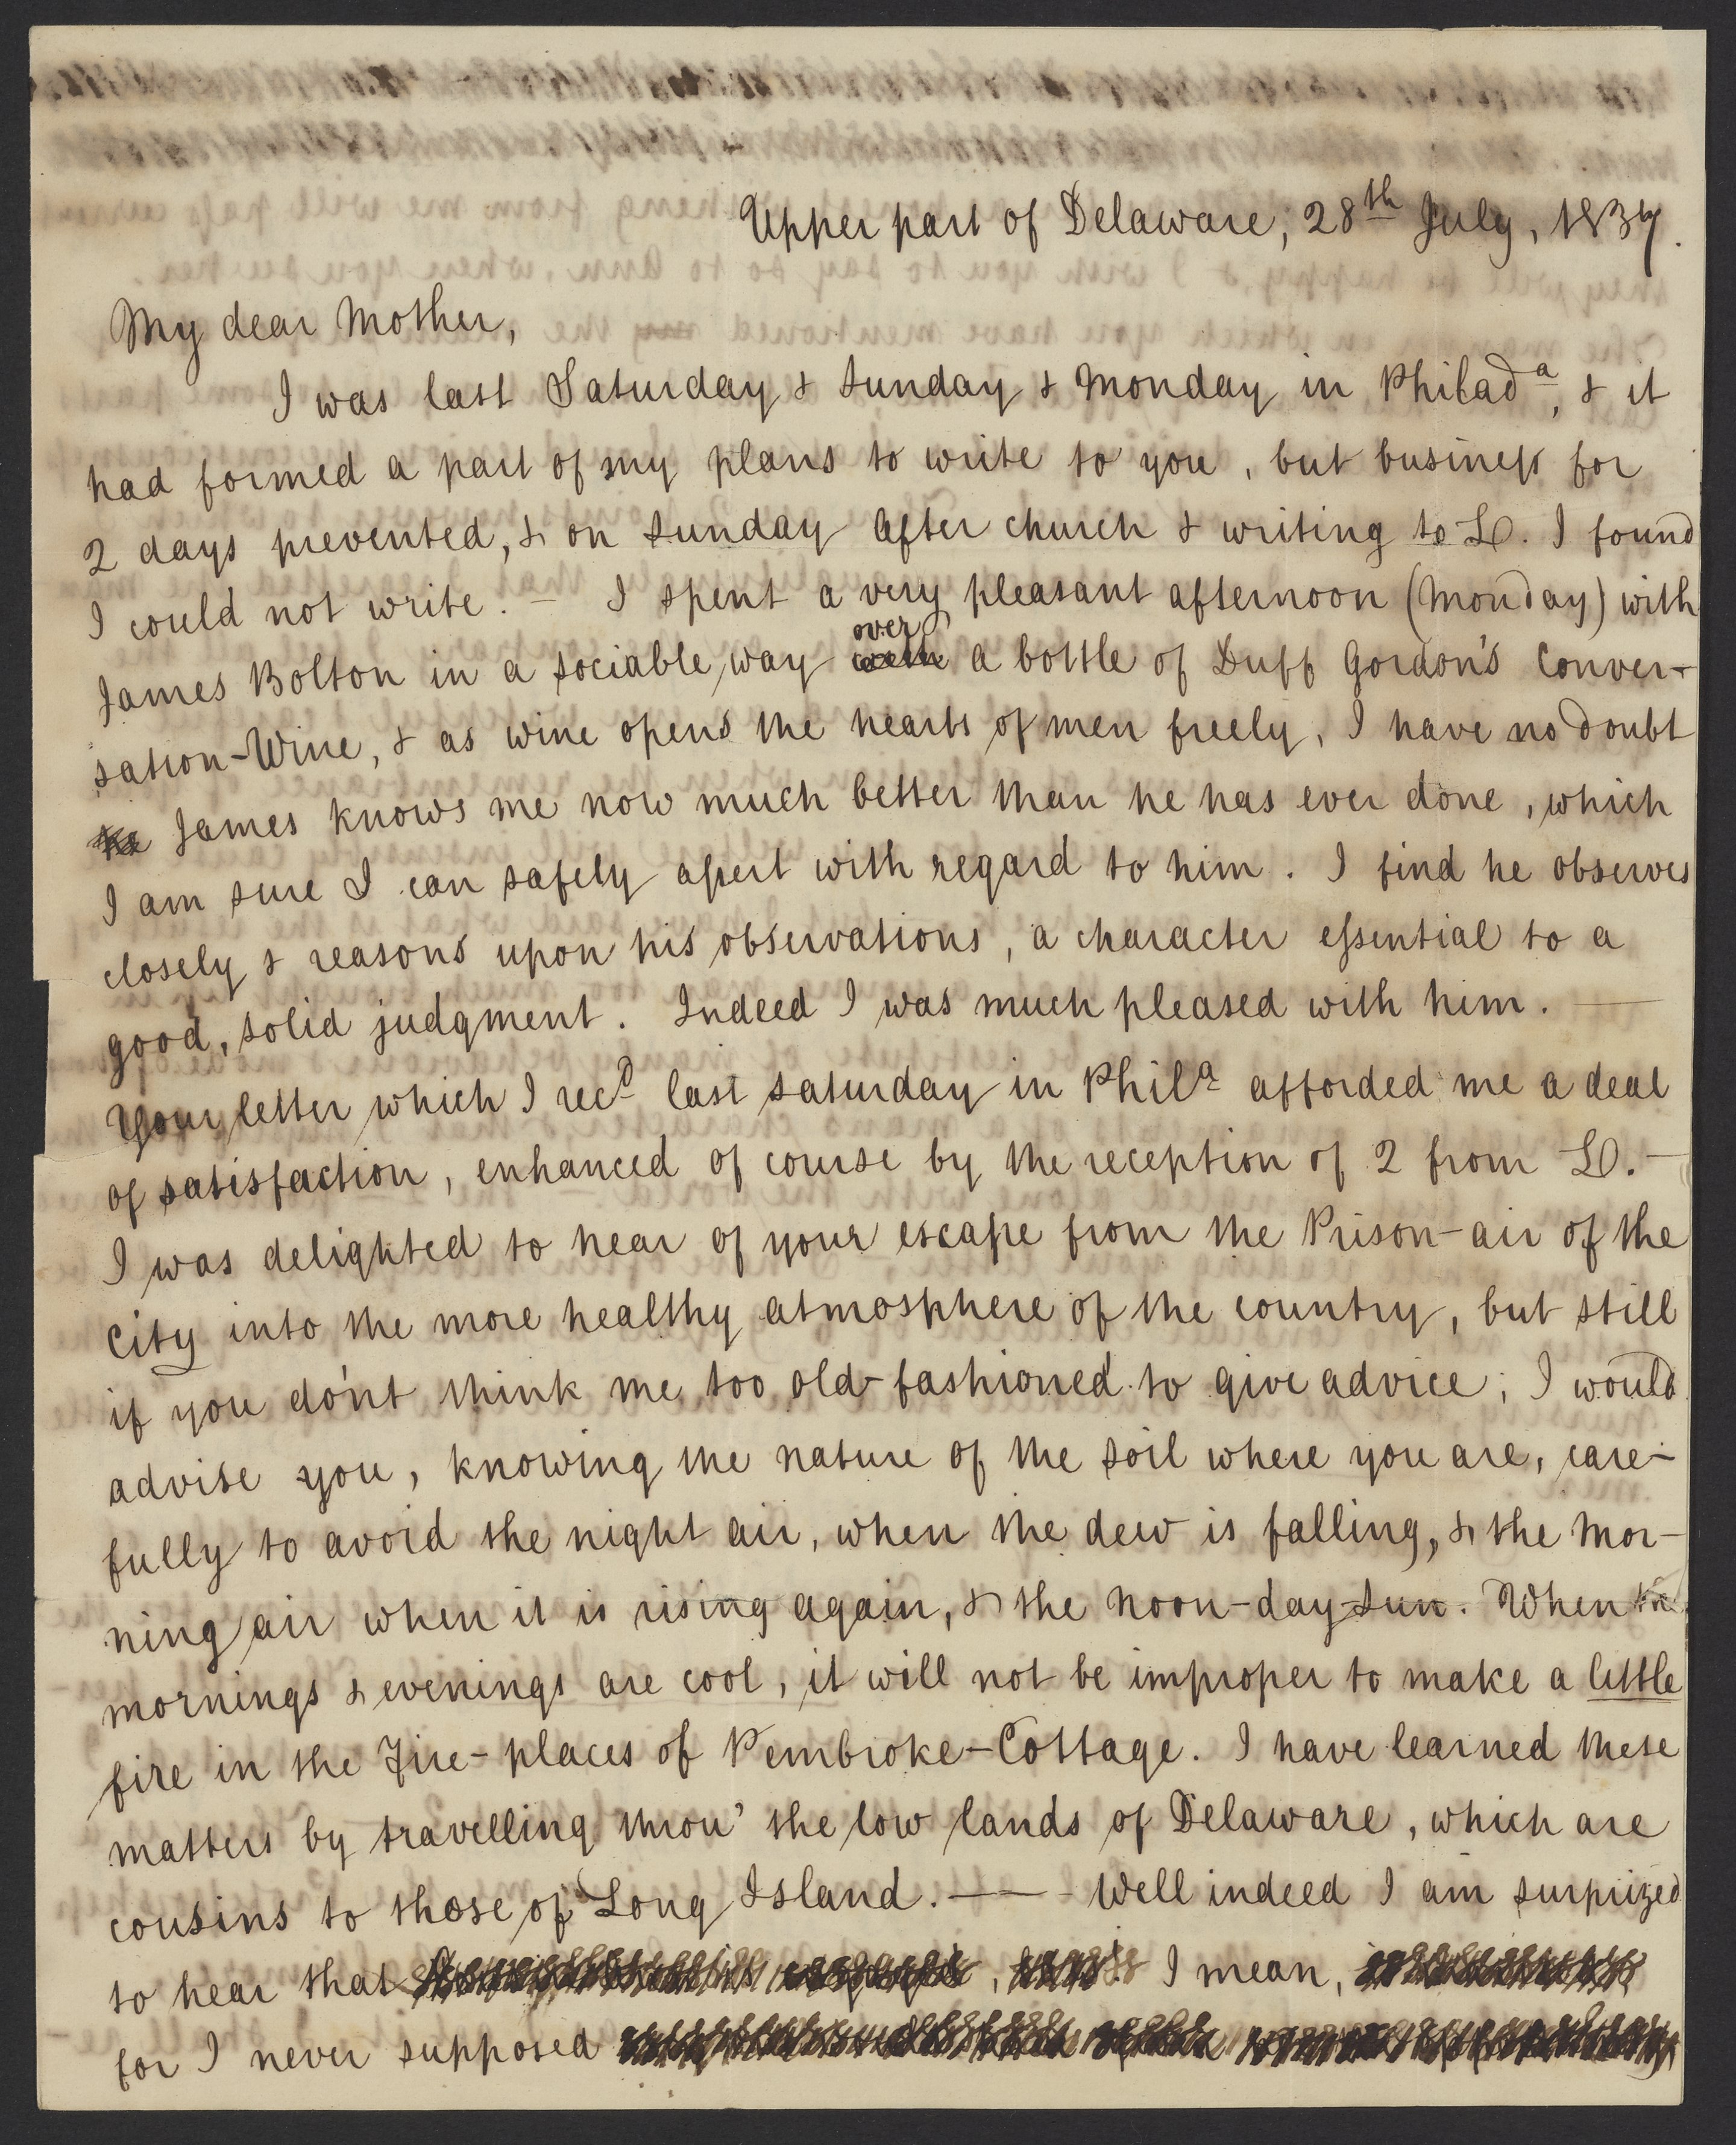 Upper part of Delaware, 28th July, 1837.
My dear Mother,
I was last Saturday & Sunday & Monday in Philada, & it
had formed a part of my plans to write to you, but business for
2 days prevented, & on Sunday after church & writing to L. I found
I could not write. – I spent a very pleasant afternoon (Monday) with
James Bolton in a sociable way over a bottle of Duff Gordon's Conver-
sation-Wine, & as wine opens the hearts of men freely, I have no doubt
James knows me now much better than he has ever done, which
I am sure I can safely assert with regard to him. I find he observes
closely & reasons upon his observations, a character essential to a
good, solid judgment. Indeed I was much pleased with him. —
Your letter which I recd last Saturday in Phila afforded me a deal
of satisfaction, enhanced of course by the reception of 2 from L. –
I was delighted to hear of your escape from the Prison-air of the
City into the more healthy atmosphere of the country, but still
if you do'nt think me too old-fashioned to give advice, I would
advise you, knowing the nature of the soil where you are, care-
fully to avoid the night air, when the dew is falling, & the mor-
ning air when it is rising again, & the noon-day-sun. When the
mornings & evenings are cool, it will not be improper to make a little
fire in the Fire-places of Pembroke-Cottage. I have learned these
matters by travelling throu' the low lands of Delaware, which are
cousins to those of Long Island. —— Well indeed I am surprized
to hear that I mean,
for I never supposed